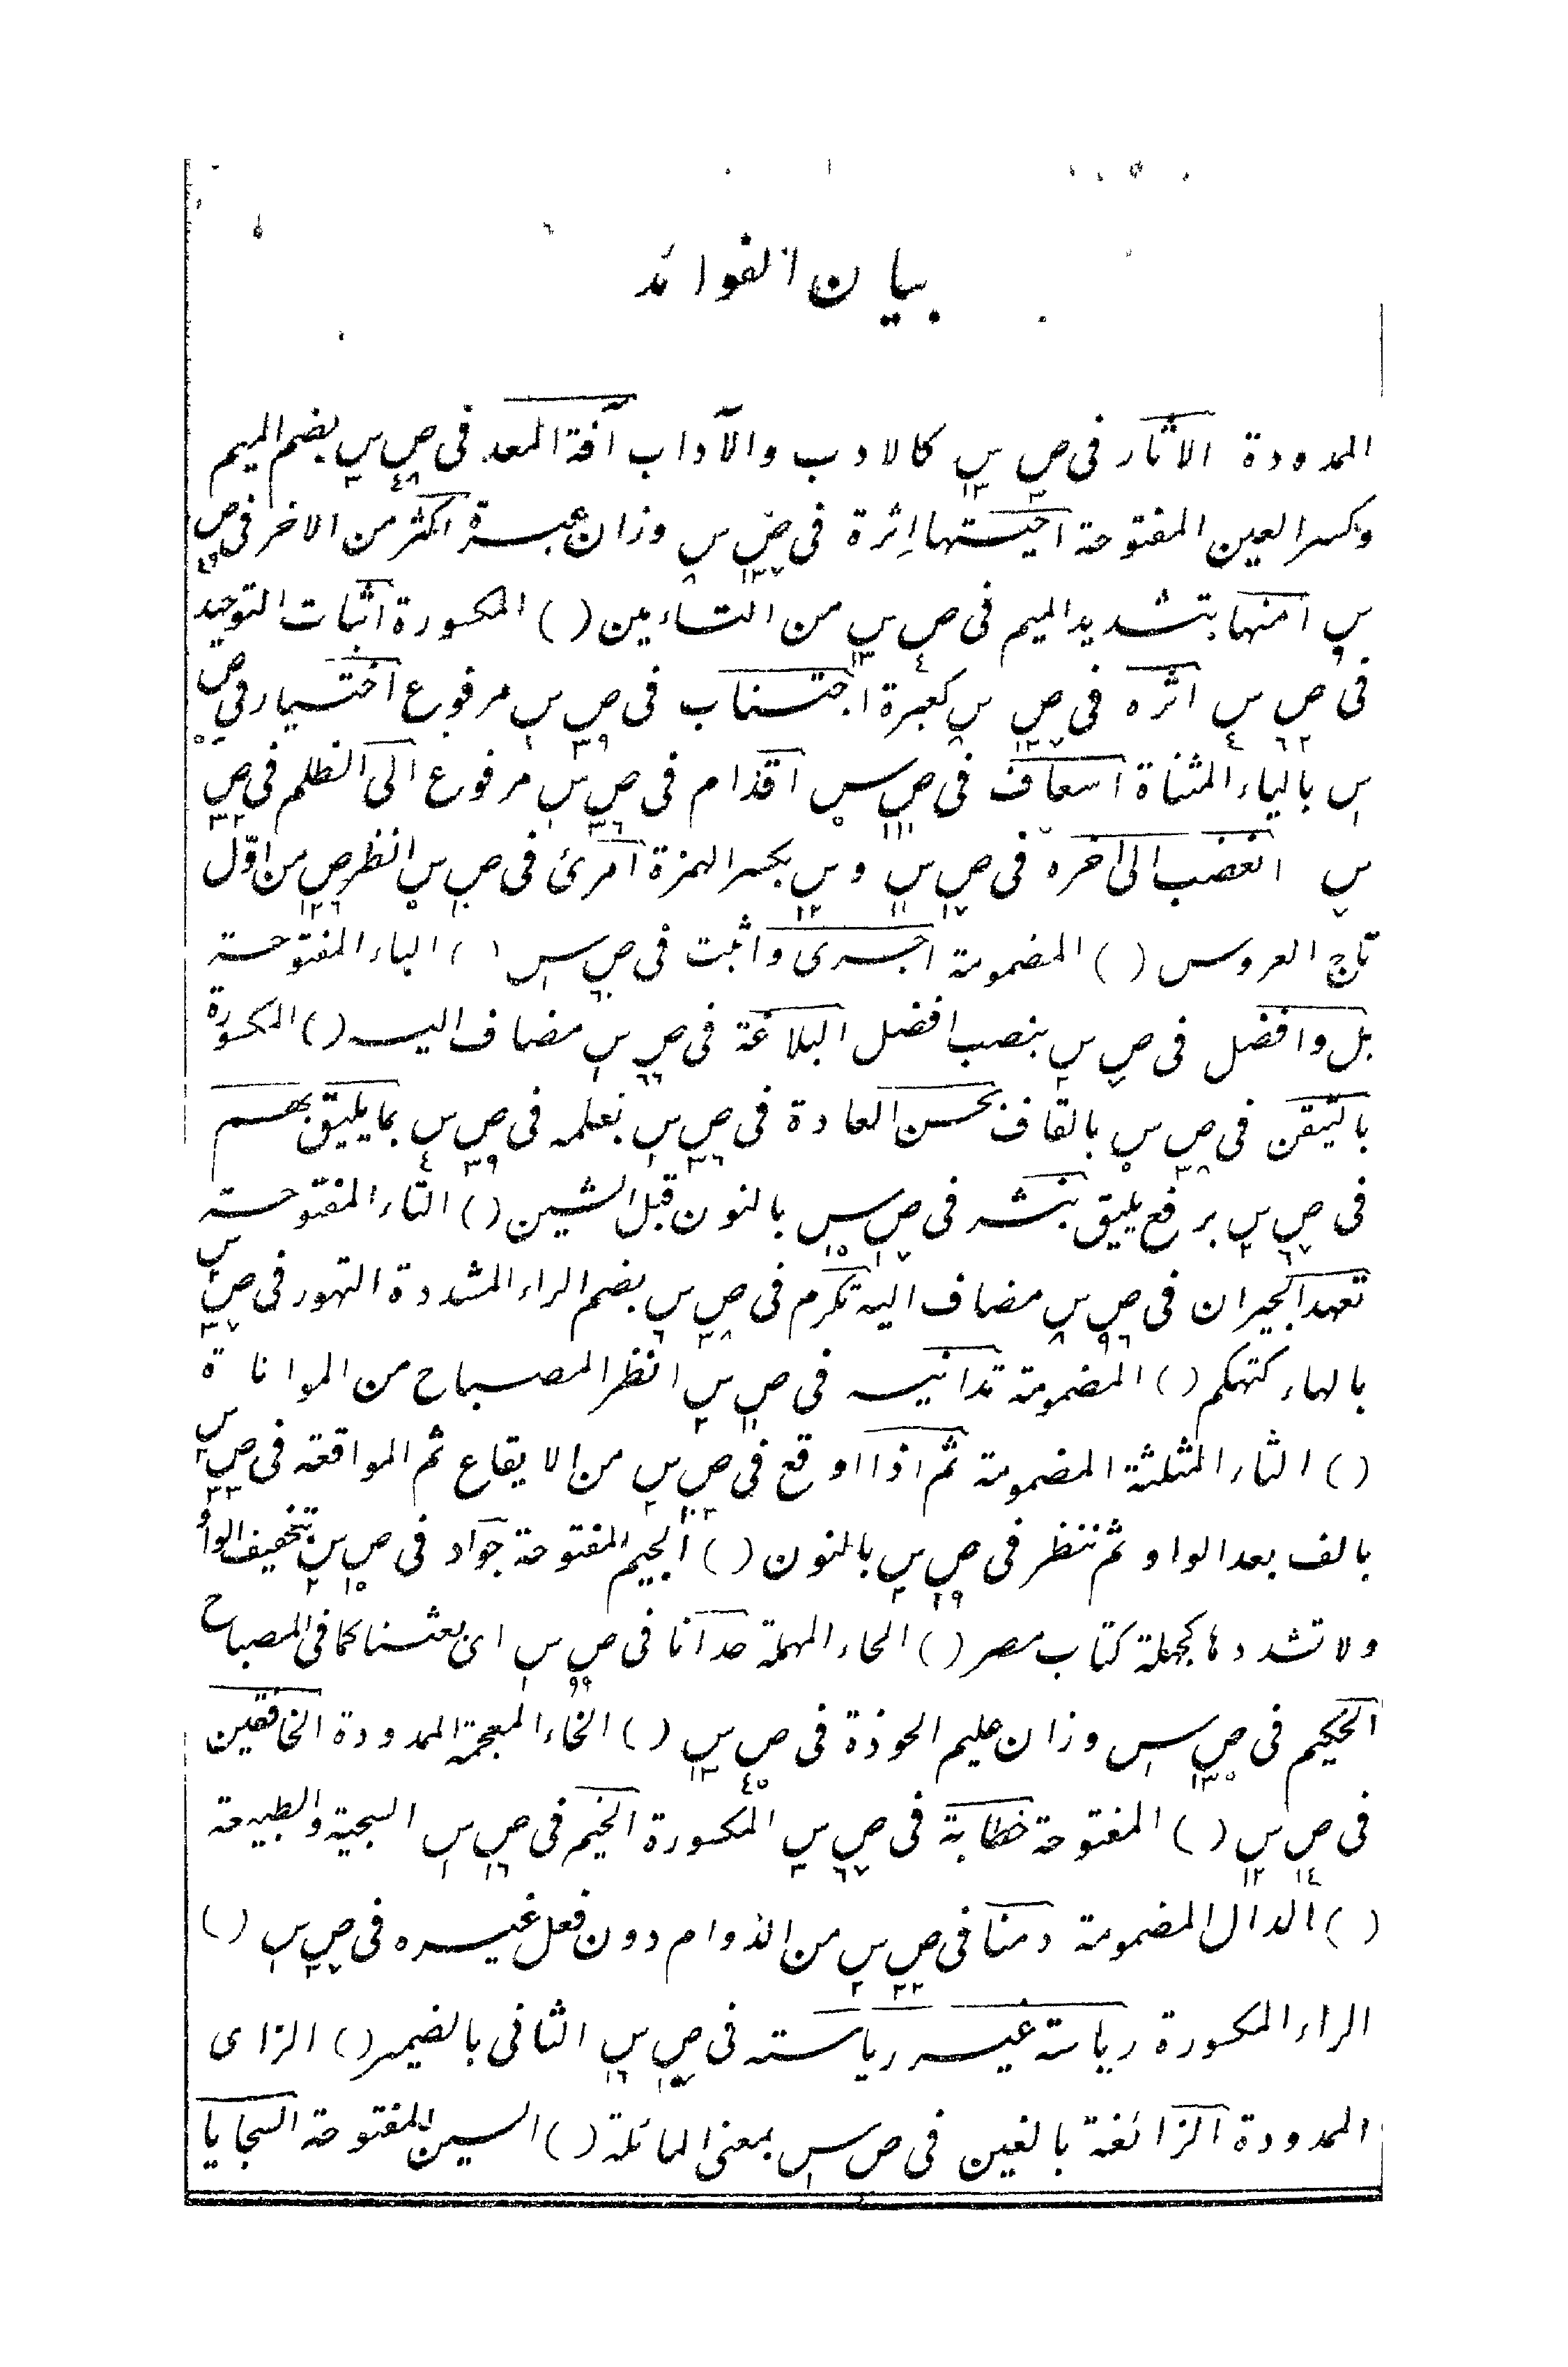 بيان الفوائد
الممدودة الآثار فى ص ٣ س ١٣ كالادب والآداب آفة المعد فى ص ٤٨ س ٣ بضم الميم
وكسر العين المفتوحة اجيتها اِثرة فى ص ١٣٧ س ٨ وزان عبرة اكثر من الاخر فى ص ٤٩
س ٩ امنها بتشديد الميم فى ص ٤ س ١٣ من التاءمين ( ) المكسورة اثبات التوحيد
فى ص ٦٢ س ٤ اثره فى ص ١٣٧ س ٨ كعبرة اجتناب فى ص ٣٩ س ١ مرفوع اختيار فى ص
س بالياء المثناة اسعاف فى ص ١١١ س ٥ اقدام فى ص ٣٦ س ١ مرفوع الى الظلم فى ص ٣٢
س ٧ الغضب الى اخره فى ص ١٧ س ١١ و س ١٢ بكسر الهمزة امرئ فى ص ١٠ س ٥ انظر ص ١٢٦ من اوّل
تاج العروس ( ) المضمومة اجرى واثبت فى ص ٦ س ١ ( ) الباء المفتوحة
بل وافضل فى ص ٧ س ٢ بنصب افضل البلاغة فى ص ٦٦ س ١ مضاف اليه ( ) المكسورة
بالتيقن فى ص ٣٨ س بالقاف بحسن العادة فى ص ٣٦ س ١ نعلمه فى ص ٣٩ س ٤ بما يليق بهم
فى ص ٦٧ س ٢ برفع يليق بنشر فى ص ١٠٧ س ١٥ بالنون قبل الشين ( ) التاء المفتوحة
تعهد الجيران فى ص ٩٦ س ٨ مضاف اليه تكرم فى ص ٣٨ س ٦ بضم الراء المشددة التهور فى ص ٣٧ س
بالهاء كتهكم ( ) المضمومة تدانيه فى ص ١١ س ٢ انظر المصباح من المواناة
( ) الثاء المثلثة المضمومة ثم اذا اوقع فى ص ١٠٣ س ٢ من الايقاع ثم المواقعه فى ص ٢٣ س ٢
بالف بعد الواو ثم ننظر فى ص ٢٩ س ٢ بالنون ( ) الجيم المفتوحة جواد فى ص ١٥ س ٢ بتخفيف الواو
ولا تشددها كجهلة كتاب مصر ( ) الحاء المهملة حدانا فى ص ٩٩ س ١ اى بعثنا كما فى المصباح
الحكيم فى ص ١٣٥ س وزان عليم الحوذة فى ص ٤٥ س ١٣ ( ) الخاء المعجمة الممدودة الخافقين
فى ص ١٤ س ١٢ ( ) المفتوحة خطابة فى ص ٦٧ س ٣ المكسورة الخيم فى ص ١٦ س ١ السجية والطبيعة
( ) الدال المضمومة دمنا فى ص ٣٢ س ٢ من الدوام دون فعل غيره فى ص ٣٧ س ١ ( )
الراء المكسورة رياسة غير رياسته فى ص ١٥٧ س ١٦ الثانى بالضمير ( ) الزاى
الممدودة الزائغة بالغين فى ص س ١ بمعنى المائلة ( ) السين المفتوحة السجايا